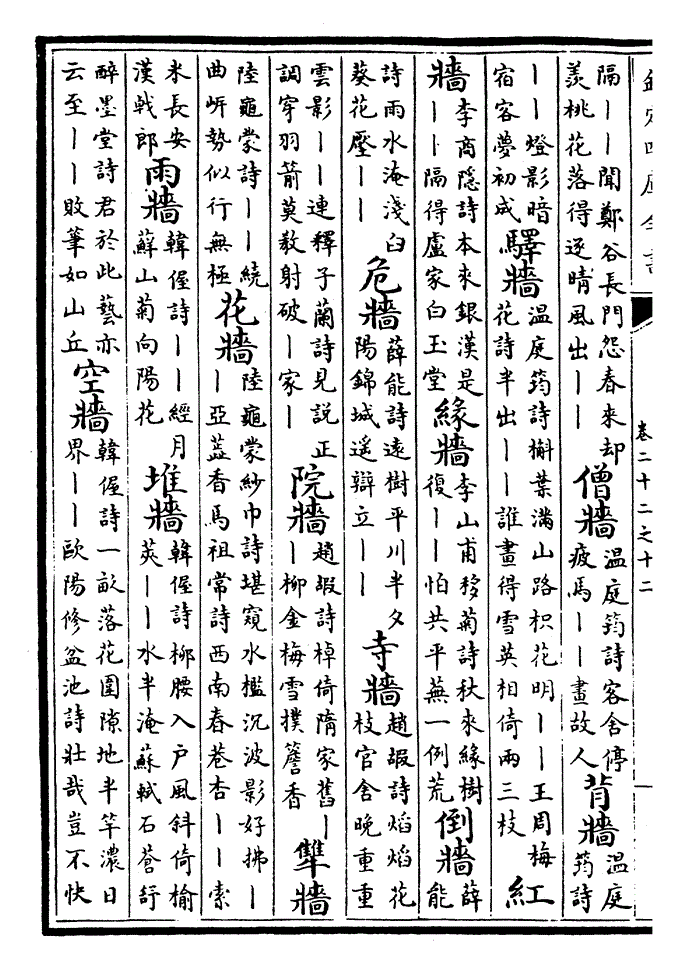 欽定四庫全書
卷二十二之十二
隔丨丨聞鄭谷長門怨春來却羨桃花落得逐晴風出丨丨僧牆温庭筠詩客舍停疲馬丨丨畫故人背牆温庭筠詩
丨丨燈影暗宿客夢初成驛牆温庭筠詩槲葉滿山路枳花明丨丨王周梅花詩半出丨丨誰畫得雪英相倚兩三枝紅
牆李商隠詩本來銀漢是丨丨隔得盧家白玉堂緣牆李山甫移菊詩秋來緣樹復丨丨怕共平蕪一例荒倒牆薛能
詩雨水淹淺臼葵花壓丨丨危牆薛能詩遠樹平川半夕陽錦城遥辯立丨丨寺牆趙嘏詩焰焰花枝官舍晚重重
雲影丨丨連釋子蘭詩見説正調穿羽箭莫教射破丨家丨院牆趙嘏詩棹倚隋家舊丨柳金梅雪撲簷香犨牆
陸龜蒙詩丨丨繞曲岓勢似行無極花牆陸龜蒙紗巾詩堪窺水檻沉波影好拂丨丨亞藍香馬祖常詩西南春巷杏丨丨索
米長安漢戟郎雨牆韓偓詩丨丨經月蘚山菊向陽花堆牆韓偓詩柳腰入户風斜倚榆莢丨丨水半淹蘇軾石蒼舒
醉墨堂詩君於此藝亦云至丨丨敗筆如山丘空牆韓偓詩一畝落花圍隙地半竿濃日界丨丨歐陽修盆池詩壯哉豈不快